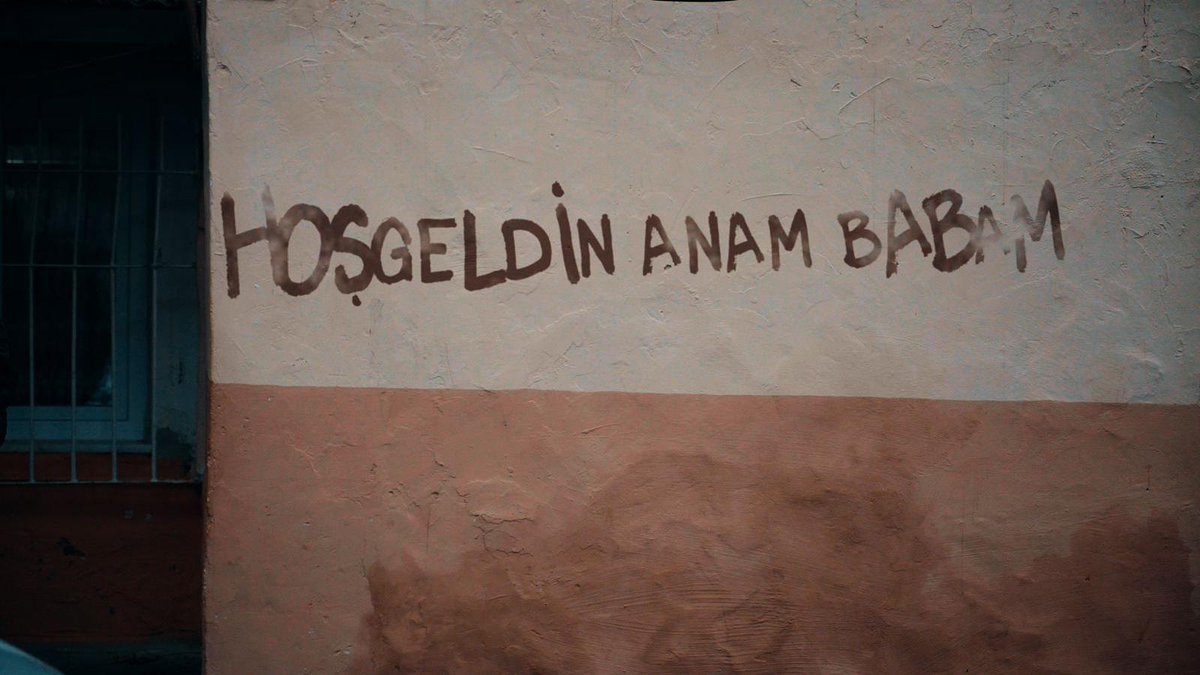 HOŞGELDİN ANAM BABAM